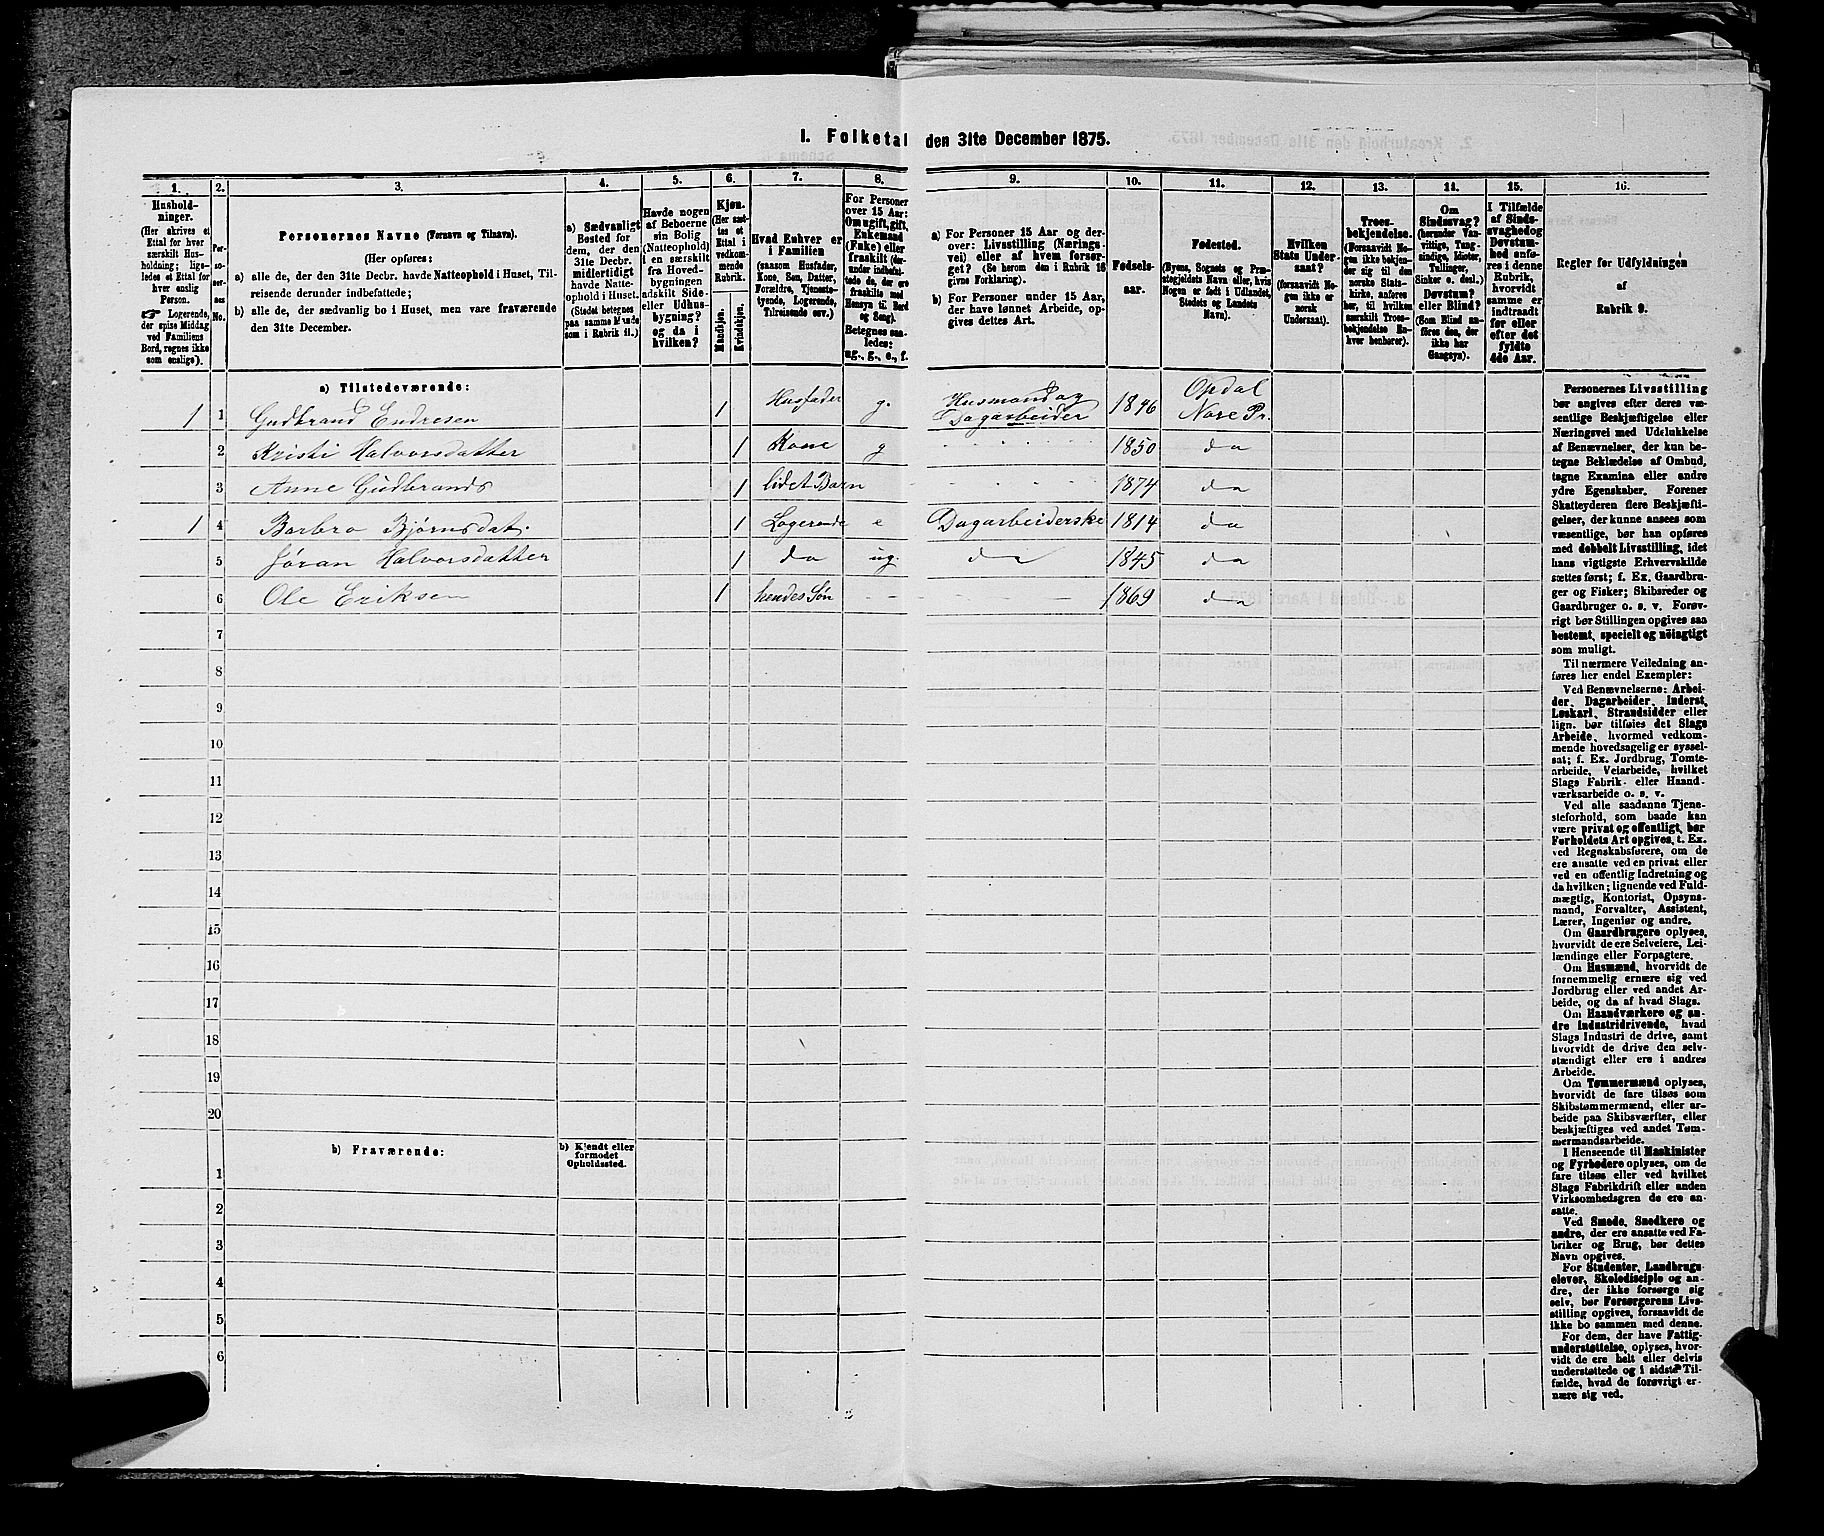 I. Folketal den 31te December 1875.
1. 2. 3. 4. 5. 6. 7. 8. 9. 10. 11. 12. 13. 14. 15. 16.
Husholdninger.
(Her skrives et
Ettal for hver
særskilt Hus-
holdning; lige-
ledes et Ettal for
hver enslig
Person.
☞ Logerende,
der spise Middag
ved Familiens
Bord, regnes ikke
som enslige).
Per-
so-
ner-
nes
No.
Personernes Navne (Fornavn og Tilnavn).
(Her opføres:
a) alle de, der den 31te Decbr. havde Natteophold i Huset, Til-
reisende derunder indbefattede;
b) alle de, der sædvanlig bo i Huset, men vare fraværende
den 31te December.
a) Sædvanligt
Bosted for
dem, der den
31te Decbr.
midlertidigt
havde Natte-
ophold i Huset.
(Stedet betegnes
paa samme Maade
som i Rubrik 11.)
Havde nogen
af Beboerne
sin Bolig
(Natteophold)
i en særskilt
fra Hoved-
bygningen
adskilt Side-
eller Udhus-
bygning?
og da i
hvilken?
Kjøn.
(Her sæt-
tes et
Ettal i
vedkom-
mende
Rubrik.
Mandkjøn.
Kvindekjøn.
Hvad Enhver er
i Familien
(saasom Husfader,
Kone, Søn, Datter,
Forældre, Tjeneste-
tyende, Logerende,
Tilreisende osv.)
For Personer
over 15 Aar:
Om ugift, gift,
Enkemand
(Enke) eller
fraskilt (der-
under indbefat-
tede de, der ere
fraskilte med
Hensyn til Bord
og Seng).
Betegnes saa-
ledes:
ug., g., e., f.
a) For Personer 15 Aar og der-
over: Livsstilling (Nærings-
vei) eller af hvem forsør-
get? (Se herom den i Rubrik 16
givne Forklaring).
b) For Personer under 15 Aar,
der have lønnet Arbeide, op-
gives dettes Art.
Fødsels-
aar.
Fødested.
(Byens, Sognets og Præ-
stegjeldets Navn eller, hvis
Nogen er født i Udlandet,
Stedets og Landets
Navn).
Hvilken
Stats Under-
saat?
(forsaavidt No-
gen ikke er
norsk
Undersaat).
Troes-
bekjendelse.
(Forsaavidt No-
gen ikke bekjen-
der sig til den
norske Stats-
kirke, anføres
her, til hvilken
særskilt Troes-
bekjendelse En-
hver henhører).
Om
Sindssvag?
(herunder Van-
vittige, Tung-
sindige, Idioter,
Tullinger,
Sinker o. desl.)
Døvstum?
eller Blind?
(Som Blind an-
føres den, der
ikke har
Gangsyn).
I Tilfælde
af Sinds-
svaghed og
Døvstum-
hed anfø-
res i denne
Rubrik,
hvorvidt
samme er
indtraadt
før eller
efter det
fyldte
4de Aar.
Regler for Udfyldningen
af
Rubrik 9.
a) Tilstedeværende:
1 1 Gudbrand Endresen 1 Husfader g. Husmand og Dagarbeider 1846 Opdal Nore Pr.
2 Kristi Halvorsdatter 1 Kone g 1850 do
3 Anne Gudbrands 1 lidet Barn 1874 do
1 4 Barbro Bjørnsdat. 1 Logerende e Dagarbeiderske 1814 do
5 Jøran Halvorsdatter 1 do ug. do 1845 do
6 Ole Eriksen 1 hendes Søn 1869 do
7
8
9
10
11
12
13
14
15
16
17
18
19
20
b) Fraværende:
b) Kjendt eller
formodet
Opholdssted.
1
2
3
4
5
6
Personernes Livsstilling
bør angives efter deres væ-
sentlige Beskjæftigelse eller
Næringsvei med Udelukkelse
af Benævnelser, der kun be-
tegne Beklædelse af Ombud,
tagne Examina eller andre
ydre Egenskaber. Forener
Skatteyderen flere Beskjæfti-
gelser, der kunne ansees som
væsentlige, bør han opføres
med dobbelt Livsstilling, idet
hans vigtigste Erhvervskilde
sættes først; f. Ex. Gaardbru-
ger og Fisker; Skibsreder og
Gaardbruger o. s. v. Forøv-
rigt bør Stillingen opgives saa
bestemt, specielt og nöiagtigt
som muligt.
Til nærmere Veiledning an-
føres her endel Exempler:
Ved Benævnelserne: Arbei-
der, Dagarbeider, Inderst,
Løskarl, Strandsidder eller
lign. bør tilføies det Slags
Arbeide, hvormed vedkom-
mende hovedsagelig er syssel-
sat; f. Ex. Jordbrug, Tomte-
arbeide, Veiarbeide, hvilket
Slags Fabrik- eller Haand-
værksarbeide o. s. v.
Ved alle saadanne Tjene-
steforhold, som baade kan
være privat og offentligt, bør
Forholdets Art opgives, t. Ex.
ved Regnskabsførere, om de
ere ansatte ved en privat eller
ved en offentlig Indretning og
da hvilken; lignende ved Fuld-
mægtig, Kontorist, Opsyns-
mand, Forvalter, Assistent,
Lærer, Ingeniør og andre.
Om Gaardbrugere oplyses,
hvorvidt de ere Selveiere, Lei-
lændinge eller Forpagtere.
Om Husmænd, hvorvidt de
fornemmelig ernære sig ved
Jordbrug eller ved andet Ar-
beide, og da af hvad Slags.
Om Haandværkere og an-
dre Industridrivende, hvad
Slags Industri de drive, samt
hvorvidt de drive den selv-
stændigt eller ere i andres
Arbeide.
Om Tømmermænd oplyses,
hvorvidt de fare tilsøs som
Skibstømmermænd, eller ar-
beide paa Skibsværfter, eller
beskjæftiges ved andet Tøm-
mermandsarbeide.
I Henseende til Maskinister
og Fyrbødere oplyses, om de
fare tilsøs eller ved hvilket
Slags Fabrikdrift eller anden
Virksomhedsgren de ere an-
satte.
Ved Smede, Snedkere og
andre, der ere ansatte ved Fa-
briker og Brug, bør dettes
Navn opgives.
For Studenter, Landbrugs-
elever, Skoledisciple og an-
dre, der ikke forsørge sig
selv, bør Forsørgerens Livs-
stilling opgives, forsaavidt de
ikke bo sammen med denne.
For dem, der have Fattig-
understøttelse, oplyses, hvor-
vidt de ere helt eller delvis
understøttede og i sidste Til-
fælde, hvad de forøvrigt er-
nære sig ved.